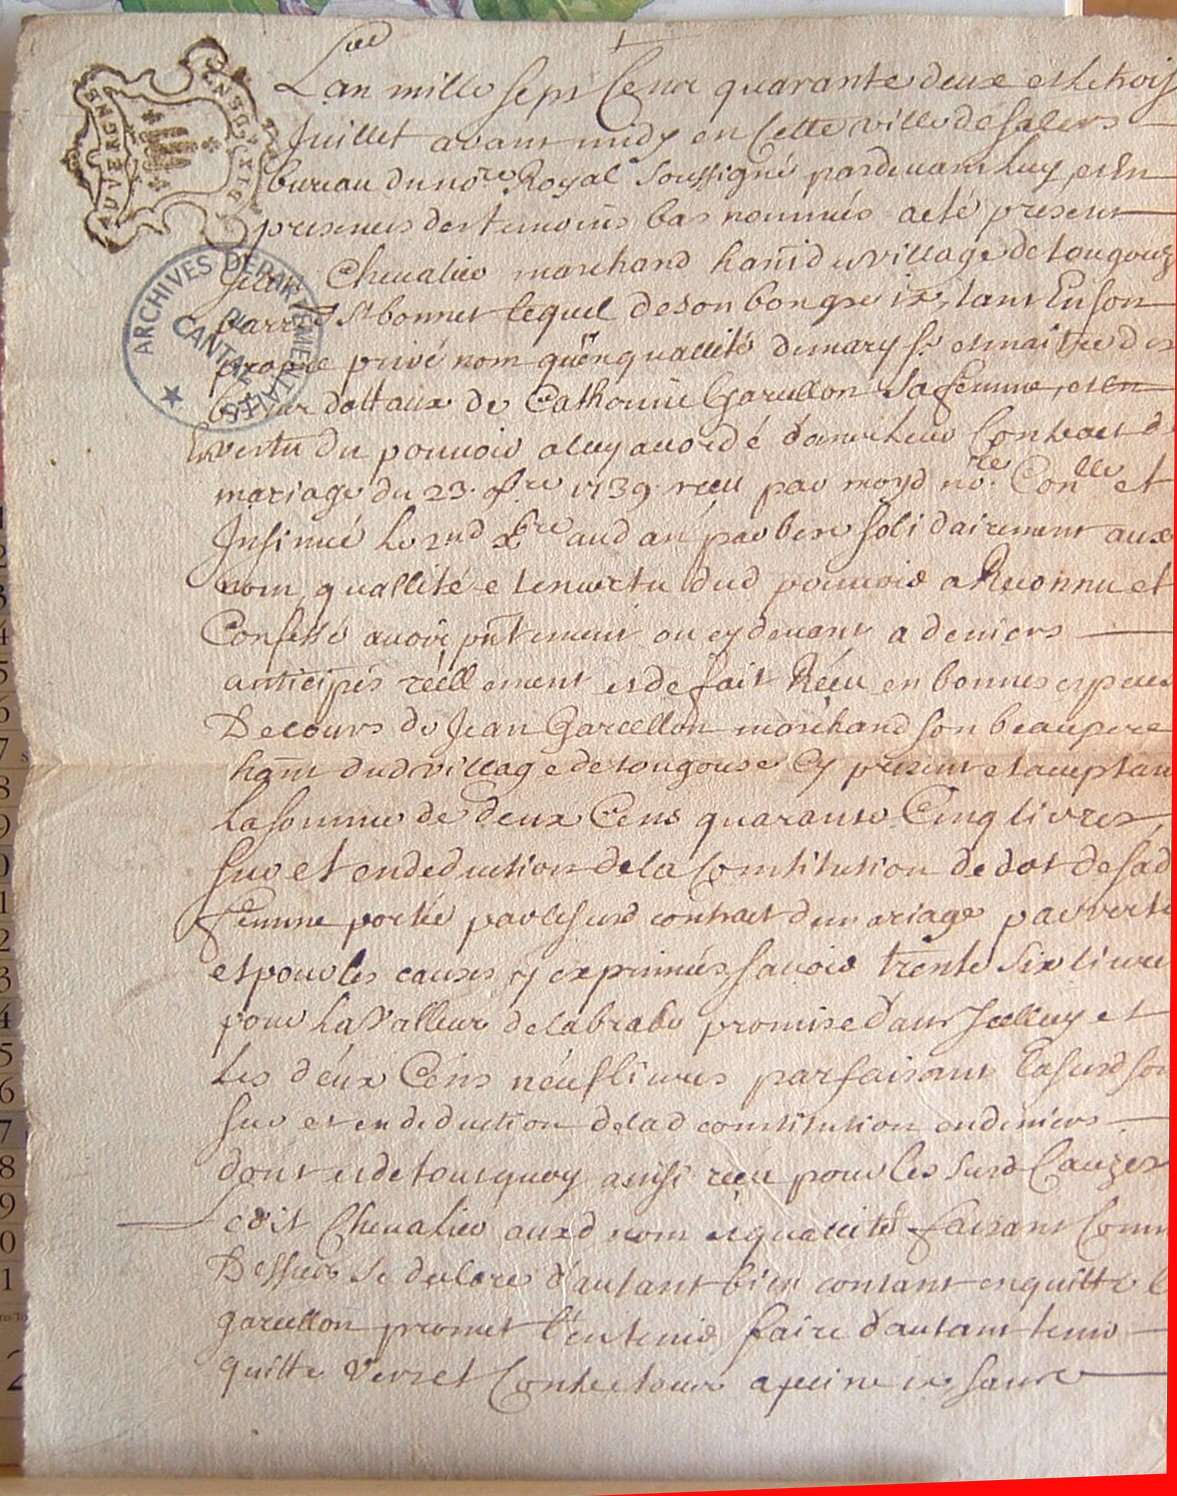 L'an mille sept Cent quarante deux et le trois
Juillet avant midy en Cette ville de Salers
bureau du no.re Royal Soussigné pardevant luy et En
presences des temoins bas nommés a eté present
Jean Chevalier marchand hant du village de tougouze
parr. St bonnet lequel de son bon gre tant En son
propre privé nom qu'en quallité de mary Sr. et maitre des
biens dottaux de Catherine Garcellon Sa femme, et en
Envertu du pouvoir a luy accordé dans leur Contract de
mariage du 23. 9bre 1739 reçu par moyd no.re Con.lle et
Insinué le 2nd Xbre aud an par solidairement aux
nom, quallité et en vertu dud pouvoir a Reconnu et
Confessé avoir pntement ou cy devant a deniers
anticipés réellement et de fait Réçu en bonnes especes
De cours de Jean Garcellon marchand son beaupere
hant dud village de tougouse Cy present et acceptant
La somme de deux Cens quarante Cinq livres
Sur et en deduction de la Constitution de dot de sad
femme portée par le susd contract de mariage par vertu
et pour les causes y exprimées Savoir trente Six livres
pour La Valleur de la promise dans Icelluy et
Les deux Céns néuf livres parfaisant La susd so
Sur et en deduction de lad constitution en deniers
dont et de tout quoy ainsi reçu pour les Susd Cauzes
ledit Chevalier auxd nom et quallités faisant Comme
Dessus Se declare d'autant bien contant en quitte le
garcellon promet l'en tenir faire d'autant tenir
quitte Vers et Contre tous a peine
AUVERGNE
ARCHIVES DEPARTEMENTALES
DU
CANTAL